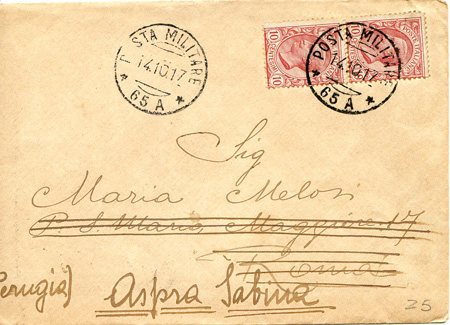 POSTA MILITARE
14.10.17
65 A
POSTA MILITARE
14.10.17
65 A
10 10
Sig
Maria Melosi
P. S. Maria Maggiore 17
Roma
Perugia) Aspra Sabina
25